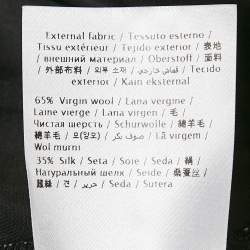 External fabric / Tessuto esterno /
Tissu extérieur / Tejido exterior / 表地
/ внешний материал / Oberstoff / 面料
/ 外部布料 / 외부 소재 / قماش خارجي / Tecido
exterior / Kain eksternal
65% Virgin wool / Lana vergine /
Laine vierge / Lana virgen / 毛 /
Чистая шерсть / Schurwolle / 绵羊毛 /
綿羊毛 / 모(양모) / صوف بكر / Lã virgem /
Wol murni
35% Silk / Seta / Soie / Seda / 絹 /
Натуральный шелк / Seide / 桑蚕丝 /
蠶絲 / 견 / حرير / Seda / Sutera